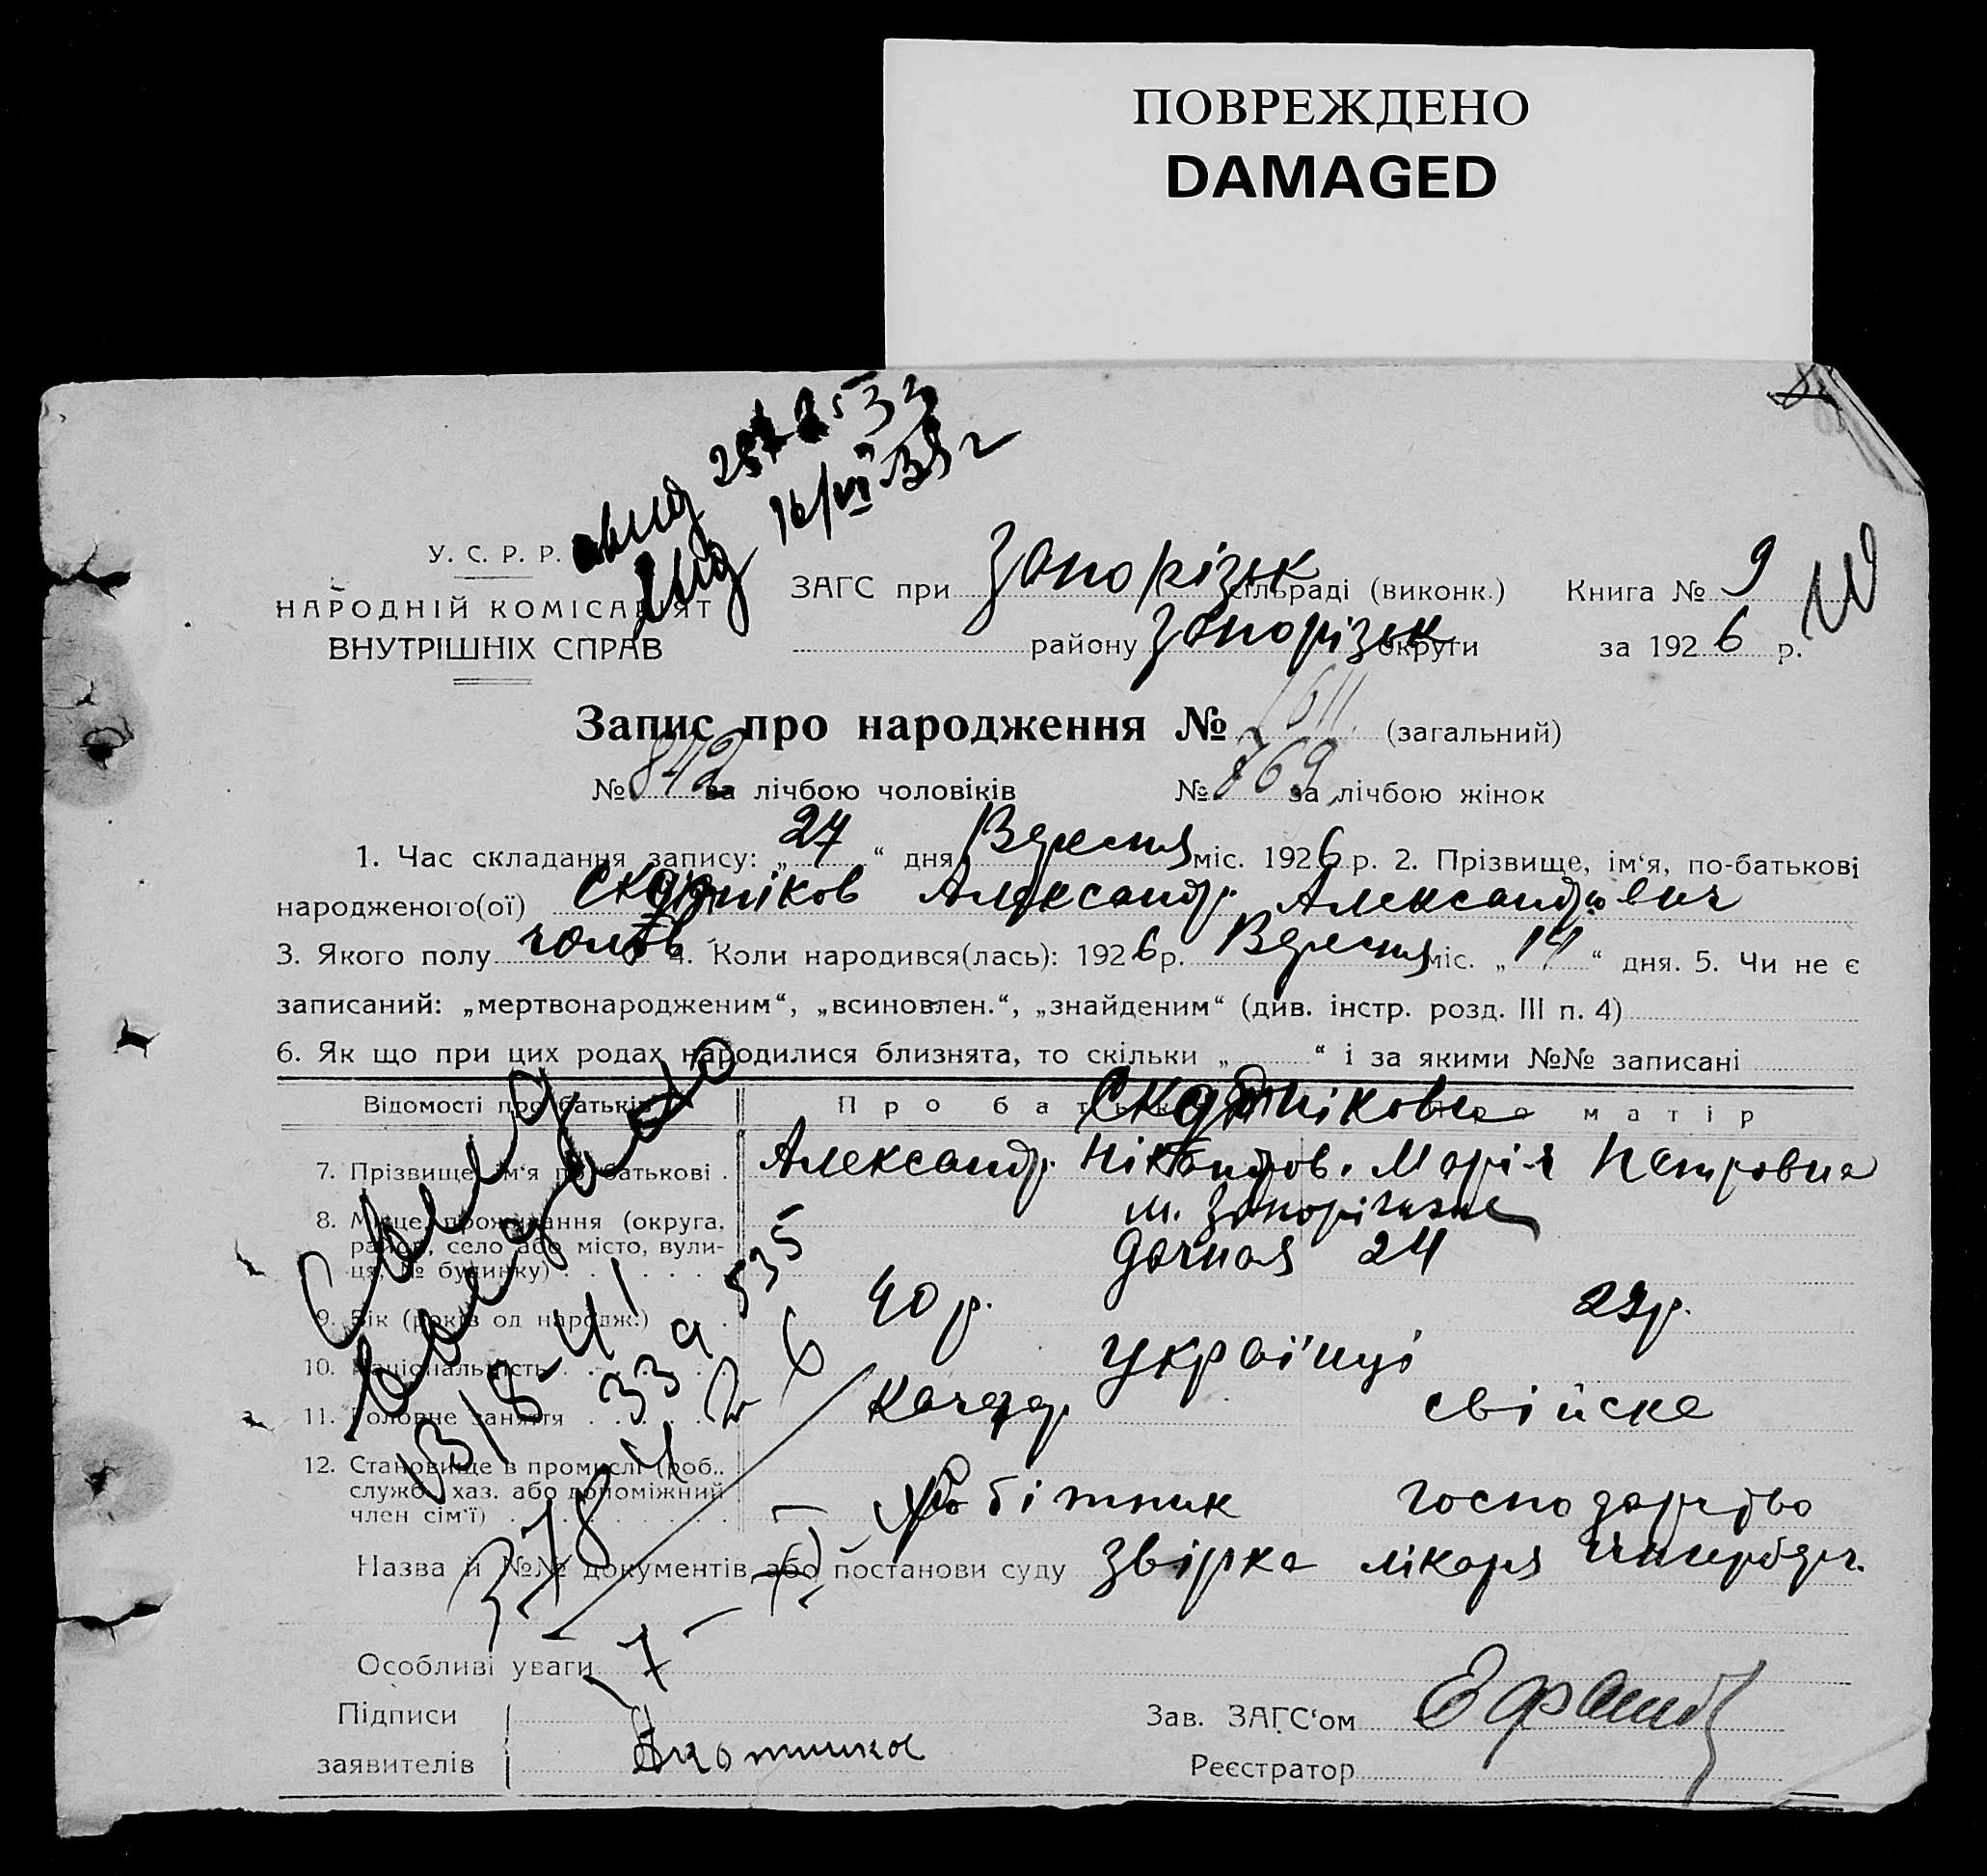 ПОВРЕЖДЕНО
DAMAGED
У. С. Р. Р.
НАРОДНІЙ КОМІСАРІЯТ
ВНУТРІШНІХ СПРАВ
ЗАГС при Запорізьк сільраді (виконк.) Книга № 9
району Запорізьк округи за 1926 р.
16/VII
Запис про народження № 1611 (загальний)
№ 842 за лічбою чоловіків № 769 за лічбою жінок
1. Час складання запису: „27“ дня Вересня міс. 1926 р. 2. Прізвище, ім‘я, по-батькові
народженого(ої) Александр Александрович
3. Якого полу чолов 4. Коли народився(лась): 1926 р. Вересня міс. „14“ дня. 5. Чи не є
записаний: „мертвонародженим“, „всиновлен.“, „знайденим“ (див. інстр. розд. III п. 4)
6. Як що при цих родах народилися близнята, то скільки „ “ і за якими №№ записані
Відомості про батьків Про батька Про матір
7. Прізвище, ім‘я по-батькові . Александр Нікандров. Марія Петровна
8. Місце проживання (округа, м. Запоріжже
район, село або місто, вули- Дачная 24
ця, № будинку) . . . . .
9. Вік (років од народж.) . . 40 р. 29 р.
10. Національність . . . . . українці
11. Головне заняття . . . . . свійске
12. Становище в промислі (роб.,
служб., хаз. або допоміжний робітник господарство
член сім‘ї) . . . . . . . .
Назва й №№ документів або постанови суду звірка лікаря
Особливі уваги
Підписи Зав. ЗАГС‘ом
заявителів Реєстратор
Свид
выдано
13/8-41